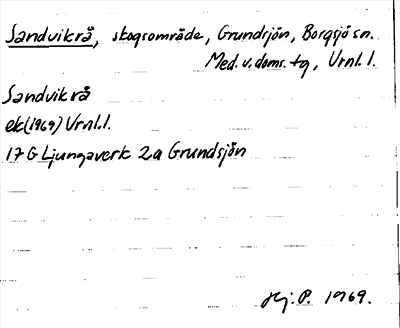 Sandvikrå, skogsområde, Grundsjön, Borgsjö sn.
Med. v. doms. tg, Vrnl. l.
Sandvikrå
ek (1969) Vrnl. l.
17 G Ljungaverk 2a Grundsjön
Hj. P. 1969.